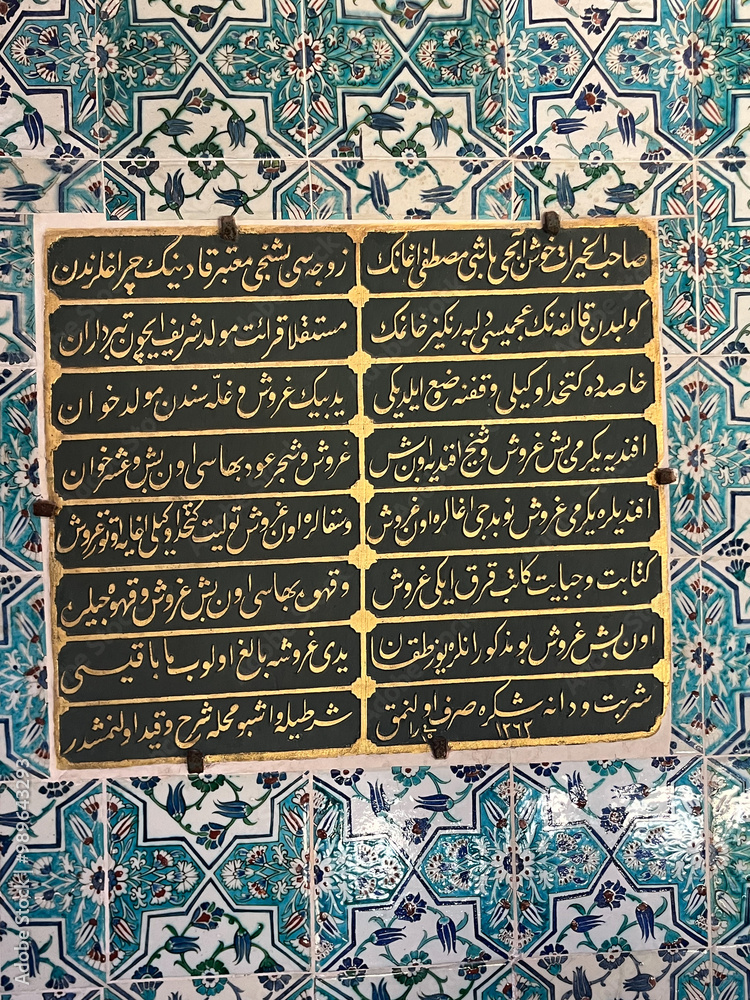 صاحب الخيرات خوشن آلجى باشى مصطفى اغانك زوجه سى بشنجى معتبر قادينك چراغلرندن
كولبدن قالفه نك عجميسى دلبه رنكيز خانمك مستقلا قرائت مولد شريف ايچون تبرداران
خاصه ده كتخدا وكيلى وقفنه وضع ايلديكى يدى بيك غروش وغله سندن مولد خوان
افندى يه يكرمى بش غروش وشيخ افندى يه اون بش غروش وشجر عود بهاسى اون بش وعشر خوان
افنديلره يكرمى غروش نوبدجى اغالره اون غروش وسقالره اون غروش توليت كتخدا وكيلى اغايه اوتوز غروش
كتابت وجبايت كاتب قرق ايكى غروش وقهوه بهاسى اون بش غروش وقهوه جيلره
اون بش غروش بو مذكورانلر يوز طقسان يدى غروشه بالغ اولوب مابا قيسى
شربت ودانه شكره صرف اولنمق شرطيله واشبو محله شرح وقيد اولنمشدر
١٢٦٢